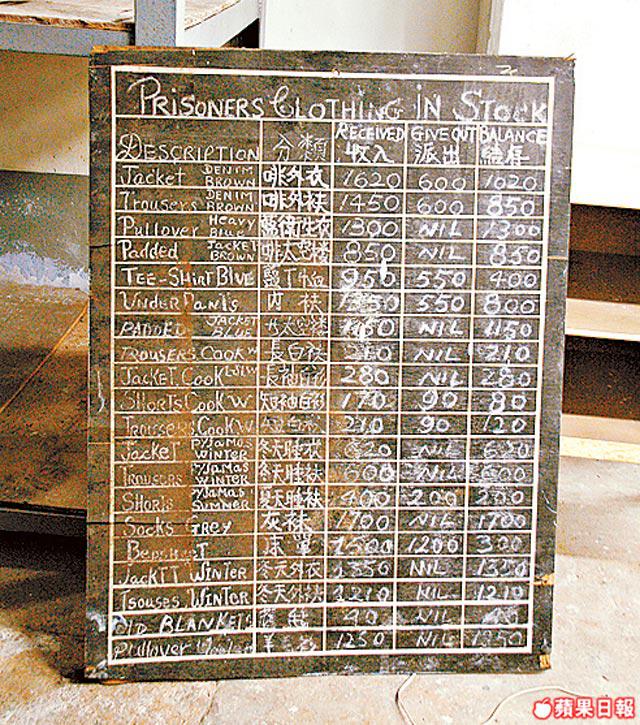 PRISONERS CLOTHING IN STOCK
DESCRIPTION 分類 RECEIVED 收入 GIVE OUT 派出 BALANCE
Jacket DENIM BROWN 啡外衣 1620 600 1020
Trousers DENIM BROWN 啡外袄 1450 600 850
Pullover Heavy Blue 1300 NIL 1300
Padded JACKET BROWN 850 NIL 850
TEE-SHIRT BLUE 950 550 400
UNDER Pants 内 550 800
PADDED JACKET BLUE NIL 1150
TROUSERS COOK W 長白 NIL 210
JACKET COOK 280 NIL 280
SHORTS COOK W 170 90 80
TROUSERS COOK W 210 90 120
JACKET PYJAMAS WINTER 冬天睡衣 620 NIL 620
Trousers PYJAMAS WINTER 冬天睡 600 NIL 600
Shorts PYJAMAS SUMMER 夏天睡 400 200 200
Socks Grey 灰袜 1700 NIL 1700
床單 1500 1200 300
JACKTT WINTER 冬天外衣 1350 NIL 1350
Tsouses WINTER 冬天外 1210 NIL 1210
OLD BLANKETS 40 NIL 40
Pullover 1250 NIL 1250
蘋果日報